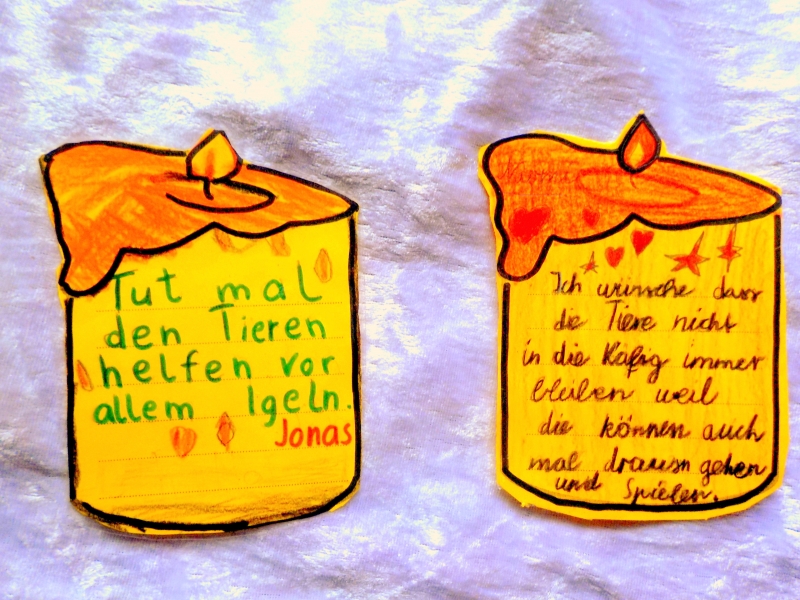 Tut mal
den Tieren
helfen vor
allem Igeln.
Jonas
Ich wünsche dass
die Tiere nicht
in die Käfig immer
bleiben weil
die können auch
mal drausn gehen
und Spielen.